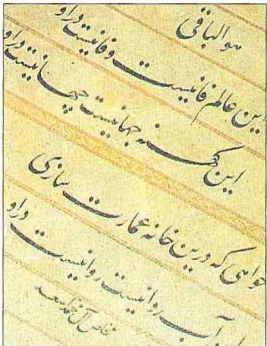 هو الباقی
این عالم فانیست وفا نیست درو
این کهنه جهانیست جهانیست درو
خواهی که درین خانه عمارت سازی
آب روانیست روانیست درو